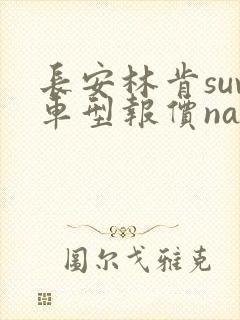 長安林肯suv
車型報價na
圖尔戈雅克